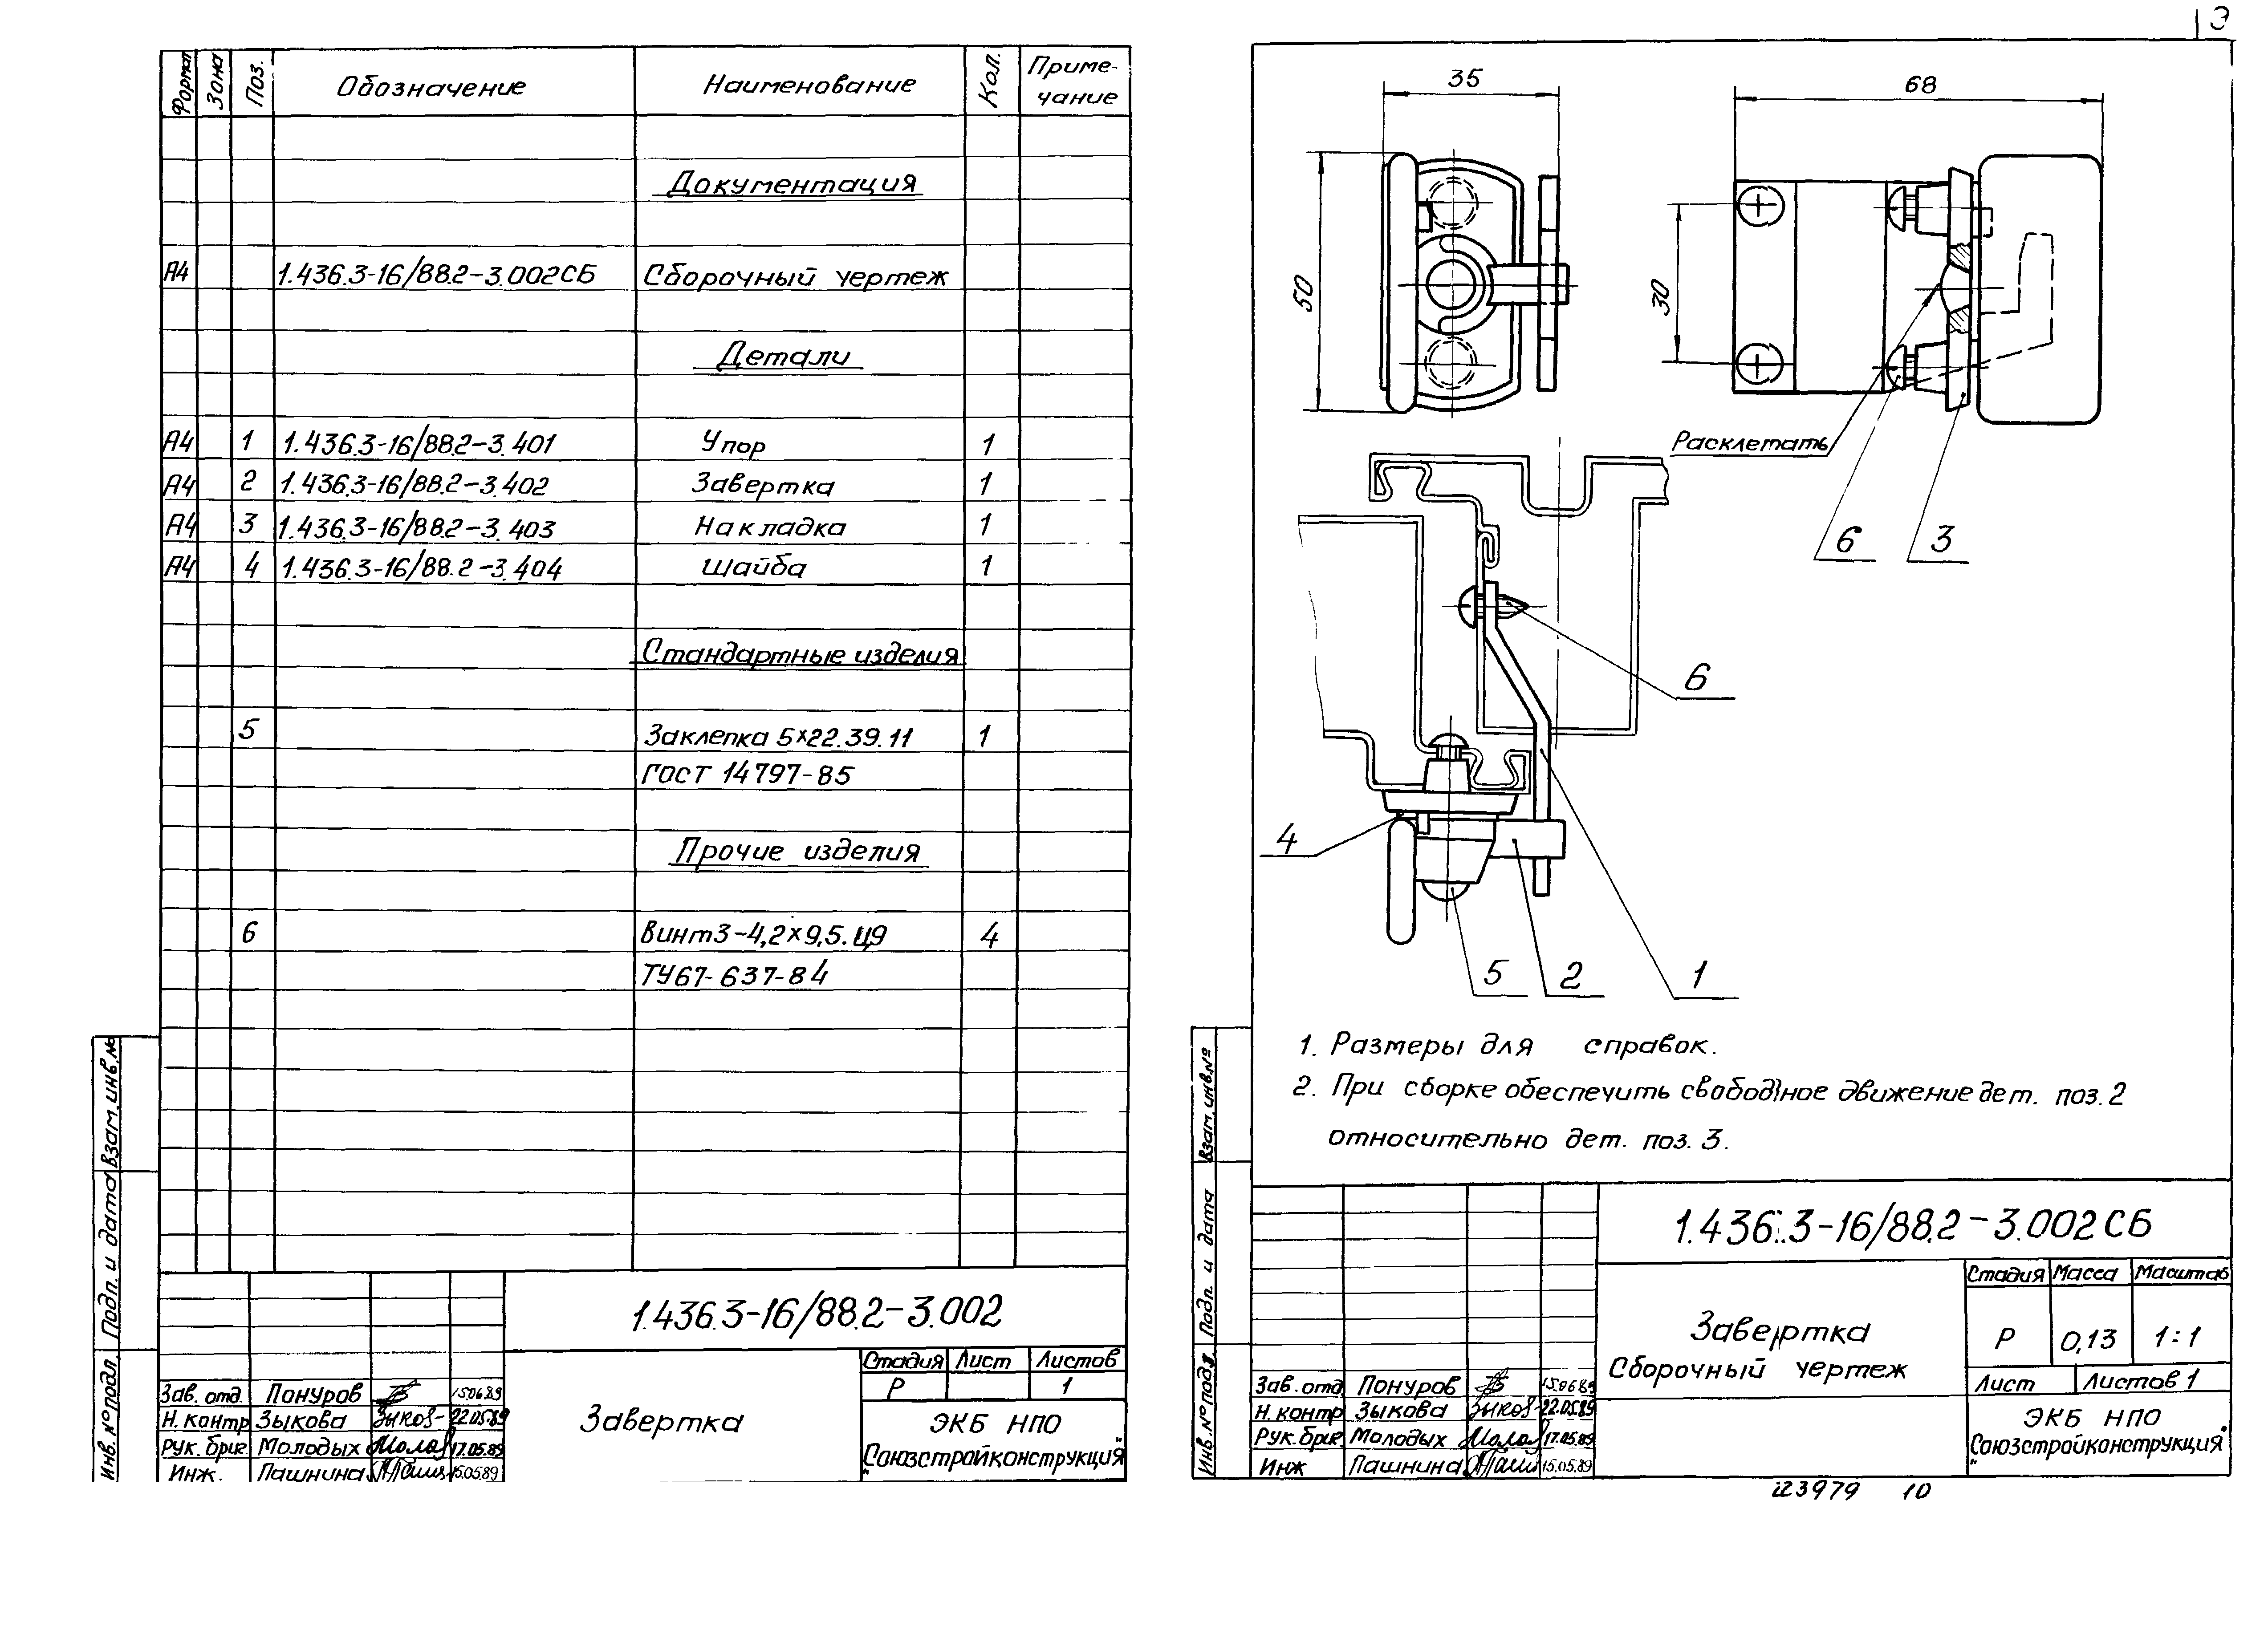 Формат Зона Поз. Обозначение Наименование Кол. Приме-
чание
Документация
А4 1.436.3-16/88.2-3.002СБ Сборочный чертеж
Детали
А4 1 1.436.3-16/88.2-3.401 Упор 1
А4 2 1.436.3-16/88.2-3.402 Завертка 1
А4 3 1.436.3-16/88.2-3.403 Накладка 1
А4 4 1.436.3-16/88.2-3.404 Шайба 1
Стандартные изделия
5 Заклепка 5×22.39.11 1
Гост 14797-85
Прочие изделия
6 Винт3-4,2×9,5.Ц9 4
ТУ67-637-84
Взам.инв.№
Подп. и дата
Инв.№подл.
1.436.3-16/88.2-3.002
Стадия Лист Листов
Р 1
Завертка
Зав. отд. Понуров 15.06.89
Н.контр Зыкова 22.05.89
Рук.бриг. Молодых 17.05.89
Инж. Пашнина 15.05.89
ЭКБ НПО
"Союзстройконструкция"
35
68
50
30
Расклепать
6 3
6
4
5 2 1
1. Размеры для справок.
2. При сборке обеспечить свободное движение дет. поз.2
относительно дет. поз. 3.
Взам.инв.№
Подп. и дата
Инв.№подл.
1.436.3-16/88.2-3.002СБ
Завертка
Сборочный чертеж
Стадия Масса Масштаб
Р 0,13 1:1
Лист Листов 1
Зав.отд Понуров 15.06.89
Н.контр Зыкова 22.05.89
Рук.бриг Молодых 17.05.89
Инж Пашнина 15.05.89
ЭКБ НПО
"Союзстройконструкция"
23979 10